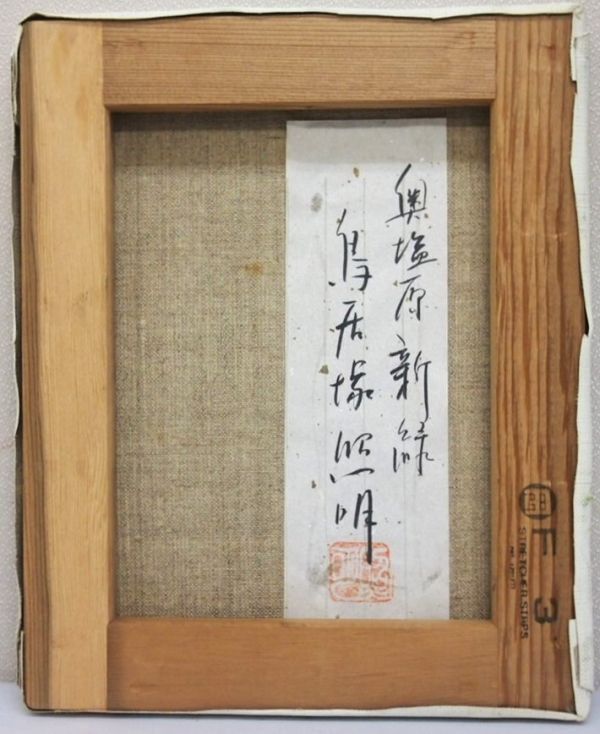 奥塩原新緑
鳥居塚照明
F 3
STRETCHER STRIPS